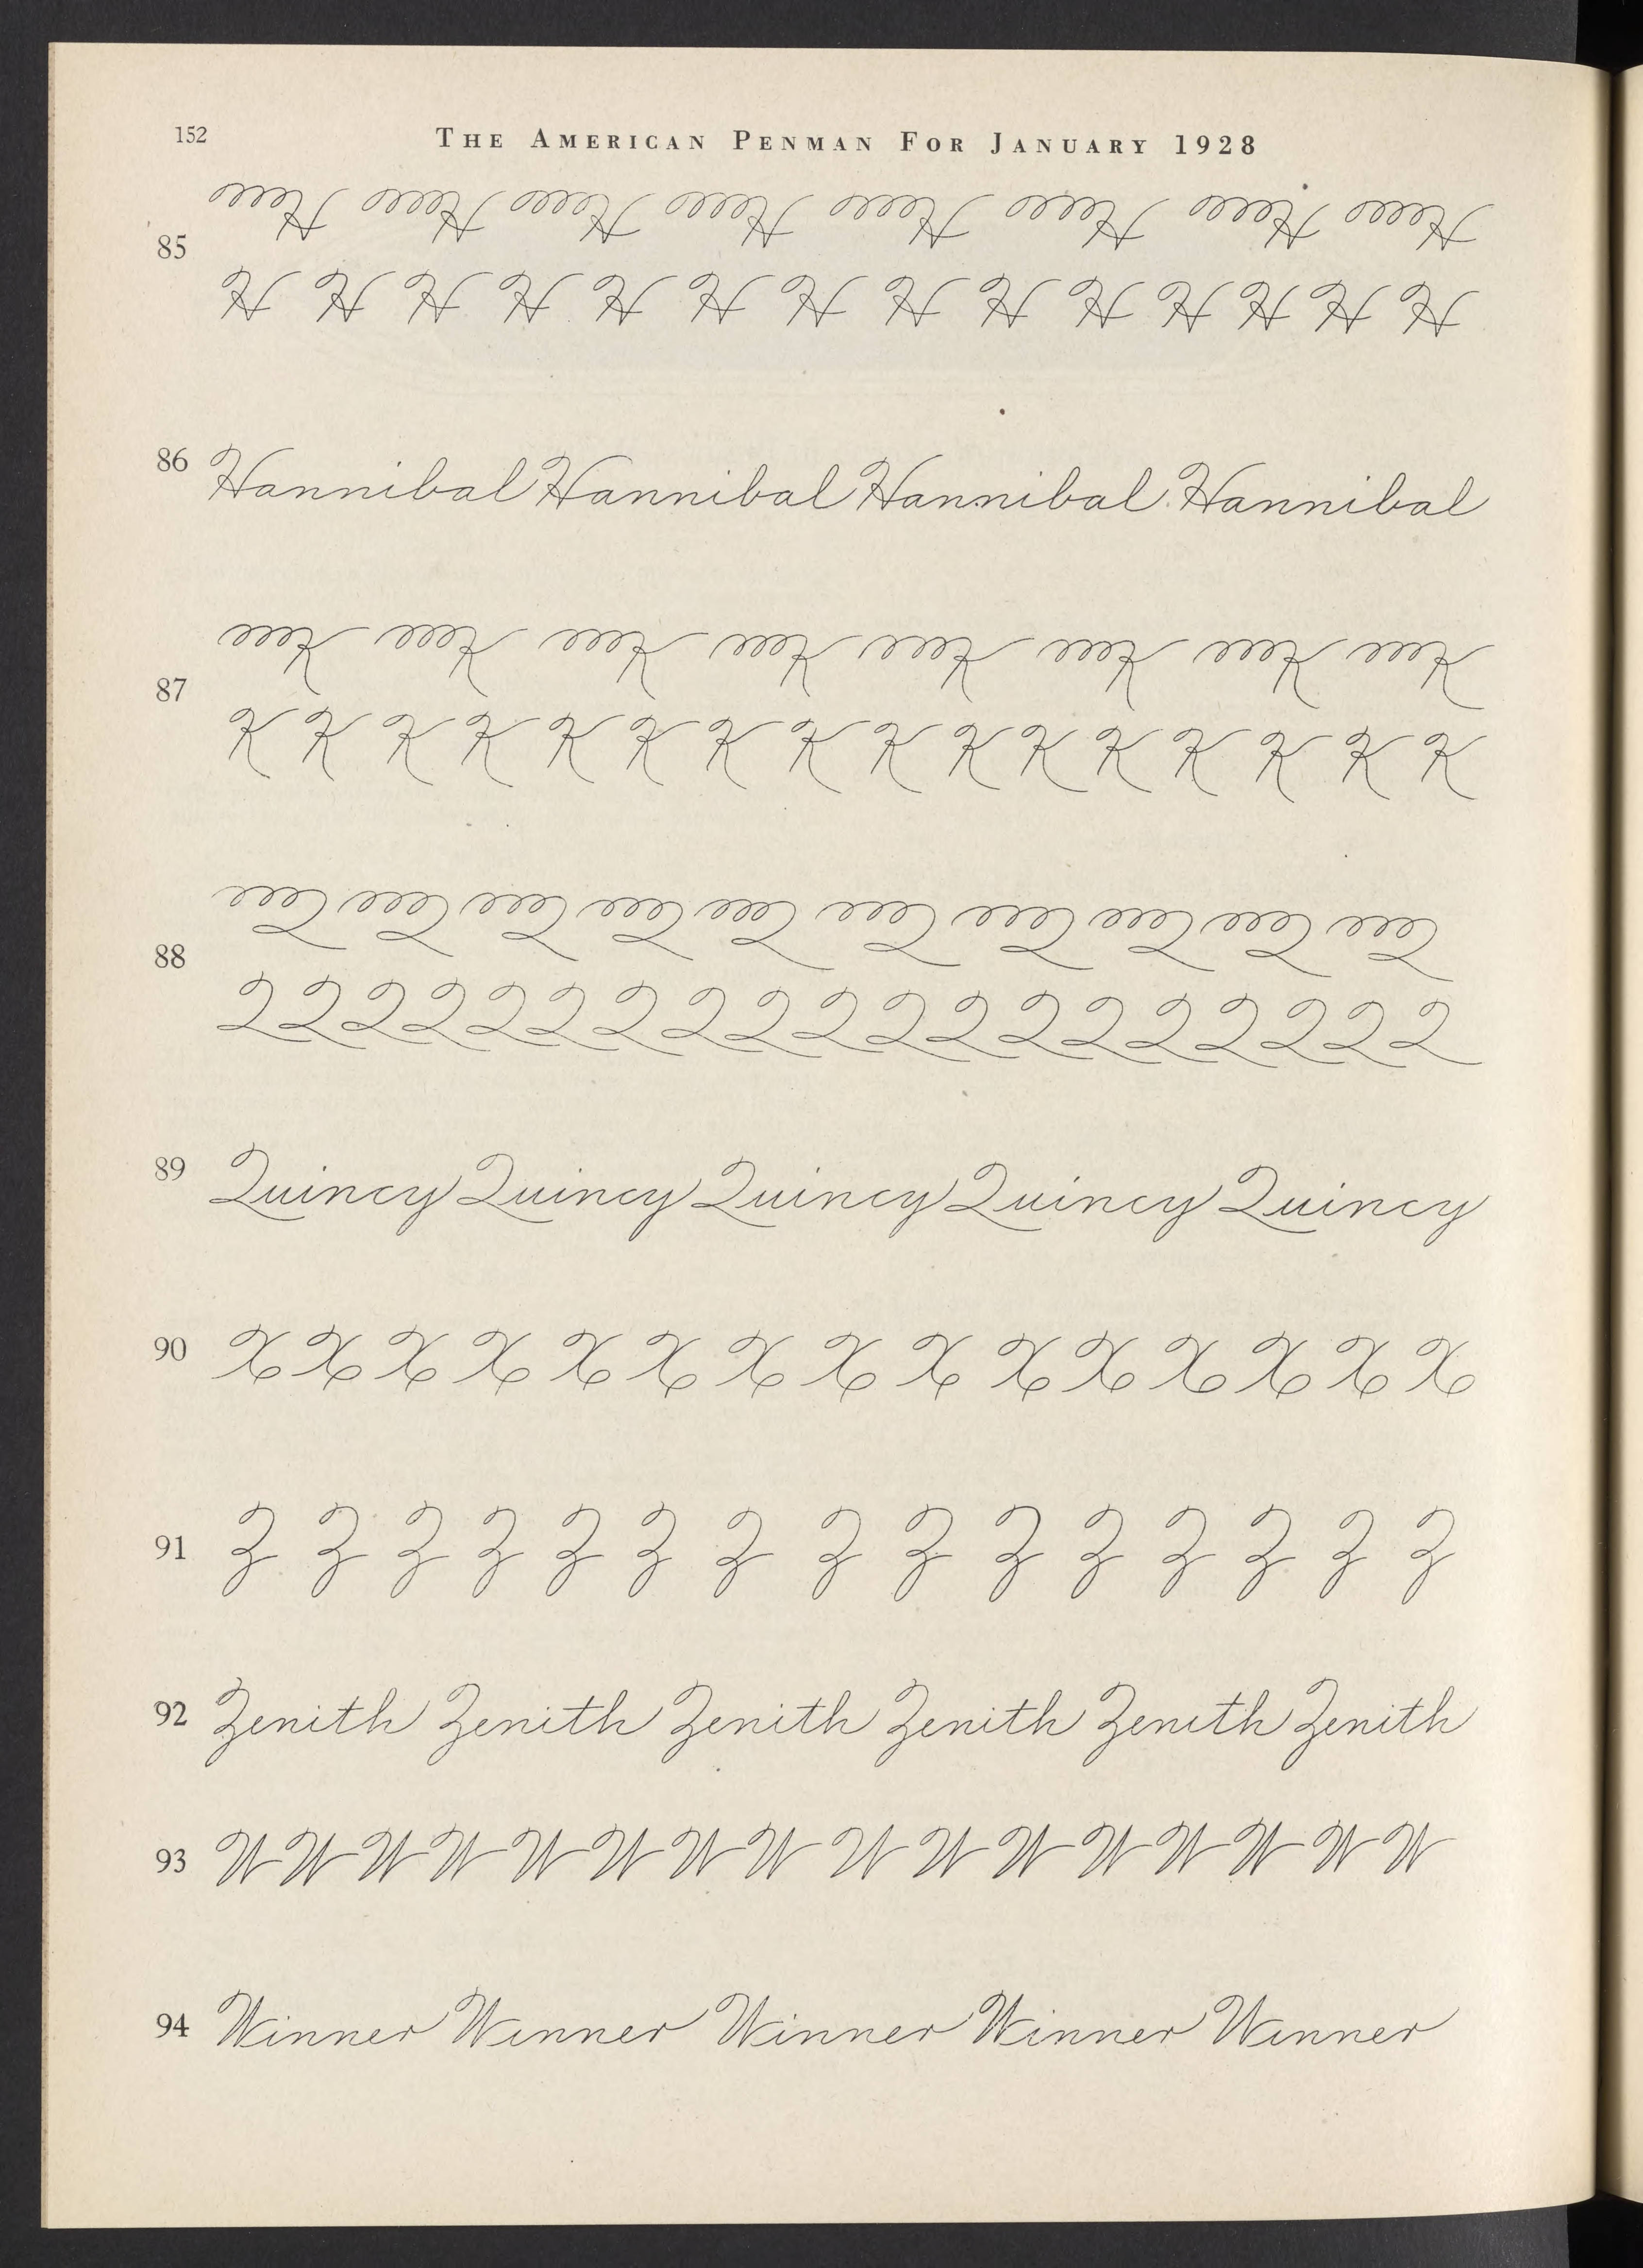 152 THE AMERICAN PENMAN FOR JANUARY 1928
85
H H H H H H H H H H H H H H
86 Hannibal Hannibal Hannibal Hannibal
87
K K K K K K K K K K K K K K K K
88
Q Q Q Q Q Q Q Q Q Q Q Q Q Q Q Q Q Q Q
89 Quincy Quincy Quincy Quincy Quincy
90 X X X X X X X X X X X X X X X
91 Z Z Z Z Z Z Z Z Z Z Z Z Z Z Z
92 Zenith Zenith Zenith Zenith Zenith Zenith
93 W W W W W W W W W W W W W W W W
94 Winner Winner Winner Winner Winner